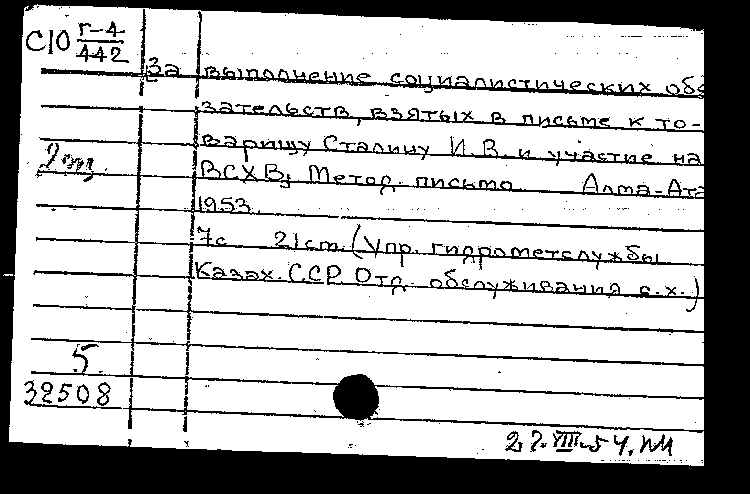 С10 Г-4
442
За выполнение социалистических обя
зательств, взятых в письме к то-
варищу Сталину И.В. и участие на
ВСХВ; Метод. письмо Алма-Ата
1953.
7с 21см. (Упр. гидрометслужбы
Казах. ССР. Отд. обслуживания с.х.)
5
32508
27.VIII.54.